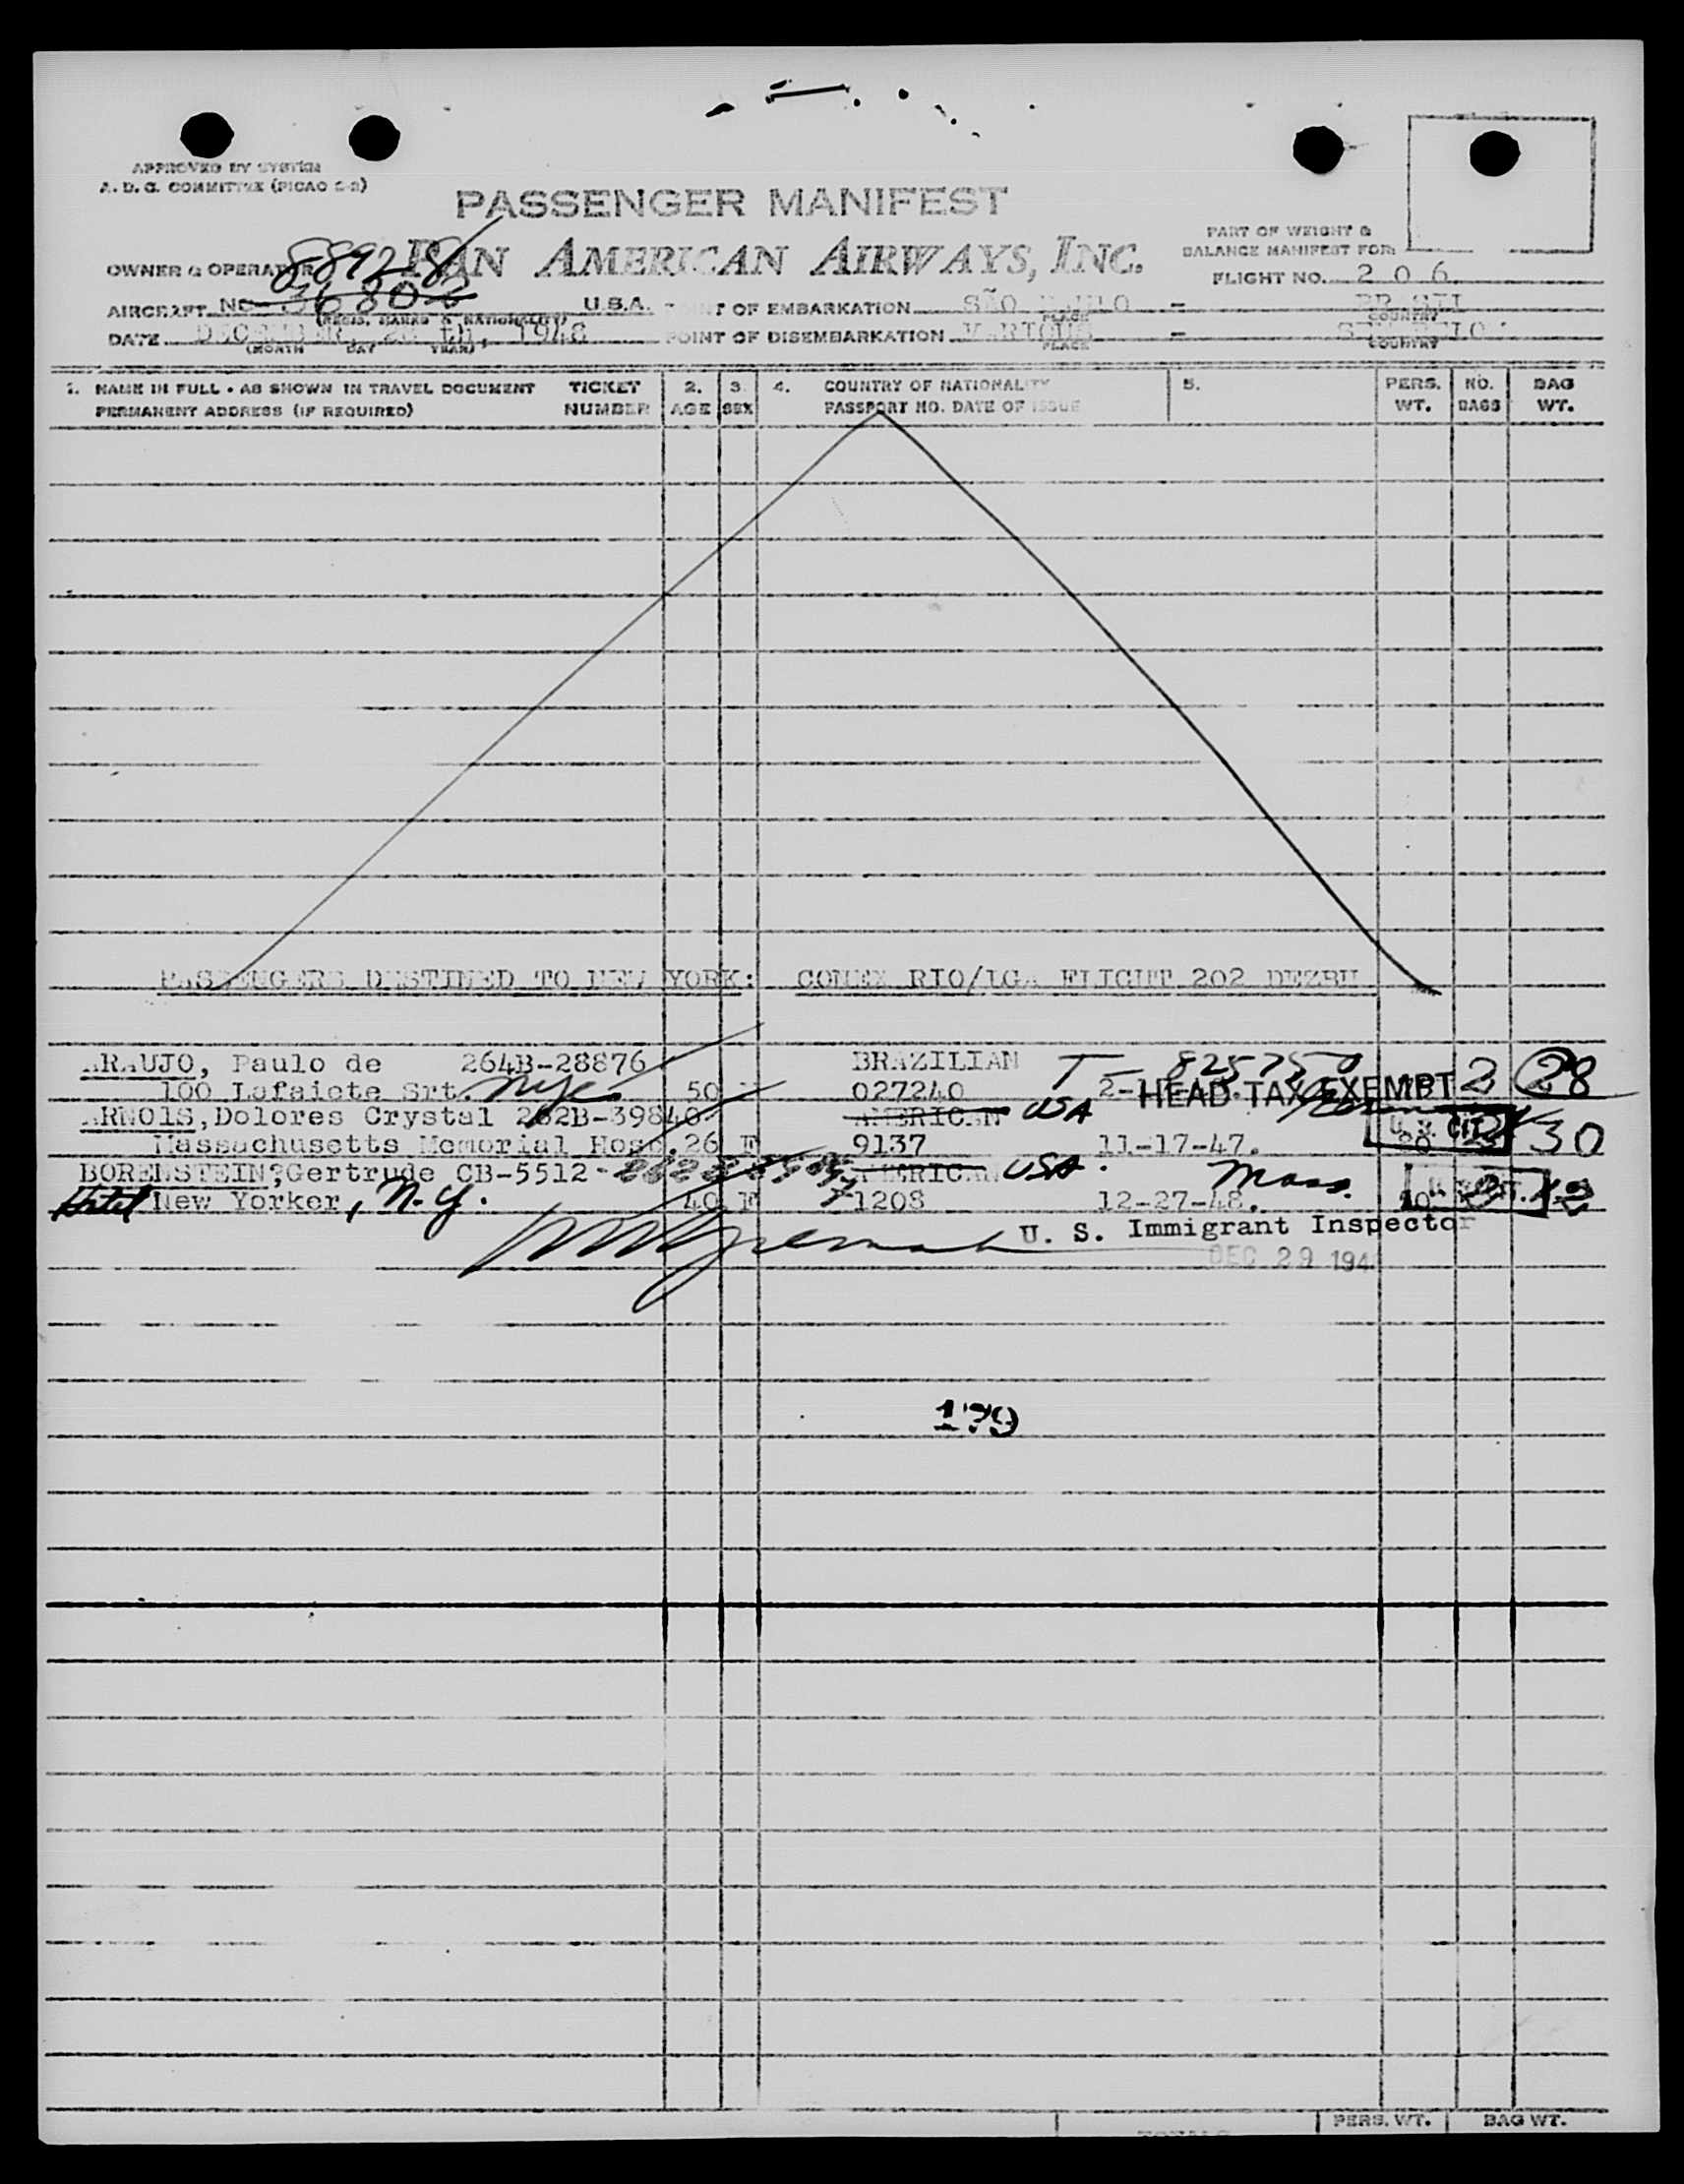 APPROVED BY SYSTEM
A. D. G. COMMITTEE (PICAO S-2)
PASSENGER MANIFEST
PAN AMERICAN AIRWAYS, INC.
PART OF WEIGHT &
BALANCE MANIFEST FOR:
OWNER & OPERATOR
88928
FLIGHT NO. 206
AIRCRAFT NC- 36802 U.S.A.
(REGIS. MARKS & NATIONALITY)
POINT OF EMBARKATION SÃO PAULO - BRASIL
PLACE COUNTRY
DATE DECEMBER, 1948
(MONTH DAY YEAR)
POINT OF DISEMBARKATION VARIOUS -
PLACE COUNTRY
1. NAME IN FULL - AS SHOWN IN TRAVEL DOCUMENT TICKET 2. 3. 4. COUNTRY OF NATIONALITY 5. PERS. NO. BAG
PERMANENT ADDRESS (IF REQUIRED) NUMBER AGE SEX PASSPORT NO. DATE OF ISSUE WT. BAGS WT.
PASSENGERS DESTINED TO NEW YORK: CONEX RIO/LGA FLIGHT 202 DEZBH
ARAUJO, Paulo de 264B-28876 BRAZILIAN T- 825750
100 Lafaiete Srt. NYC 50 027240 2- HEAD TAX EXEMPT 2 28
ARNOIS, Dolores Crystal 262B-39840 AMERICAN USA
Massachusetts Memorial Hosp. 26 F 9137 11-17-47. U.S. CIT. 30
BORENSTEIN;Gertrude CB-5512- AMERICAN USA Mass.
Hotel New Yorker, N.Y. 40 F 1208 12-27-48.
U. S. Immigrant Inspector
DEC 29 194
179
PERS. WT. BAG WT.